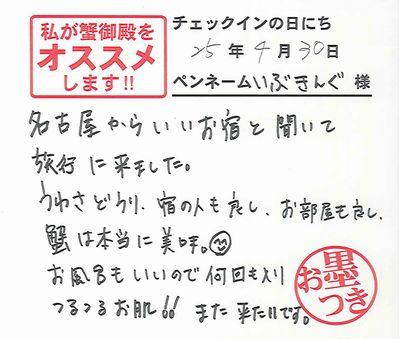 私が蟹御殿を
オススメ
します!!
チェックインの日にち
25年4月30日
ペンネームいぶきんぐ 様
名古屋からいいお宿と聞いて
旅行に来ました。
うわさどうり、宿の人も良し、お部屋も良し、
蟹は本当に美味。
お風呂もいいので何回も入り
つるつるお肌!! また来たいです。
お墨つき